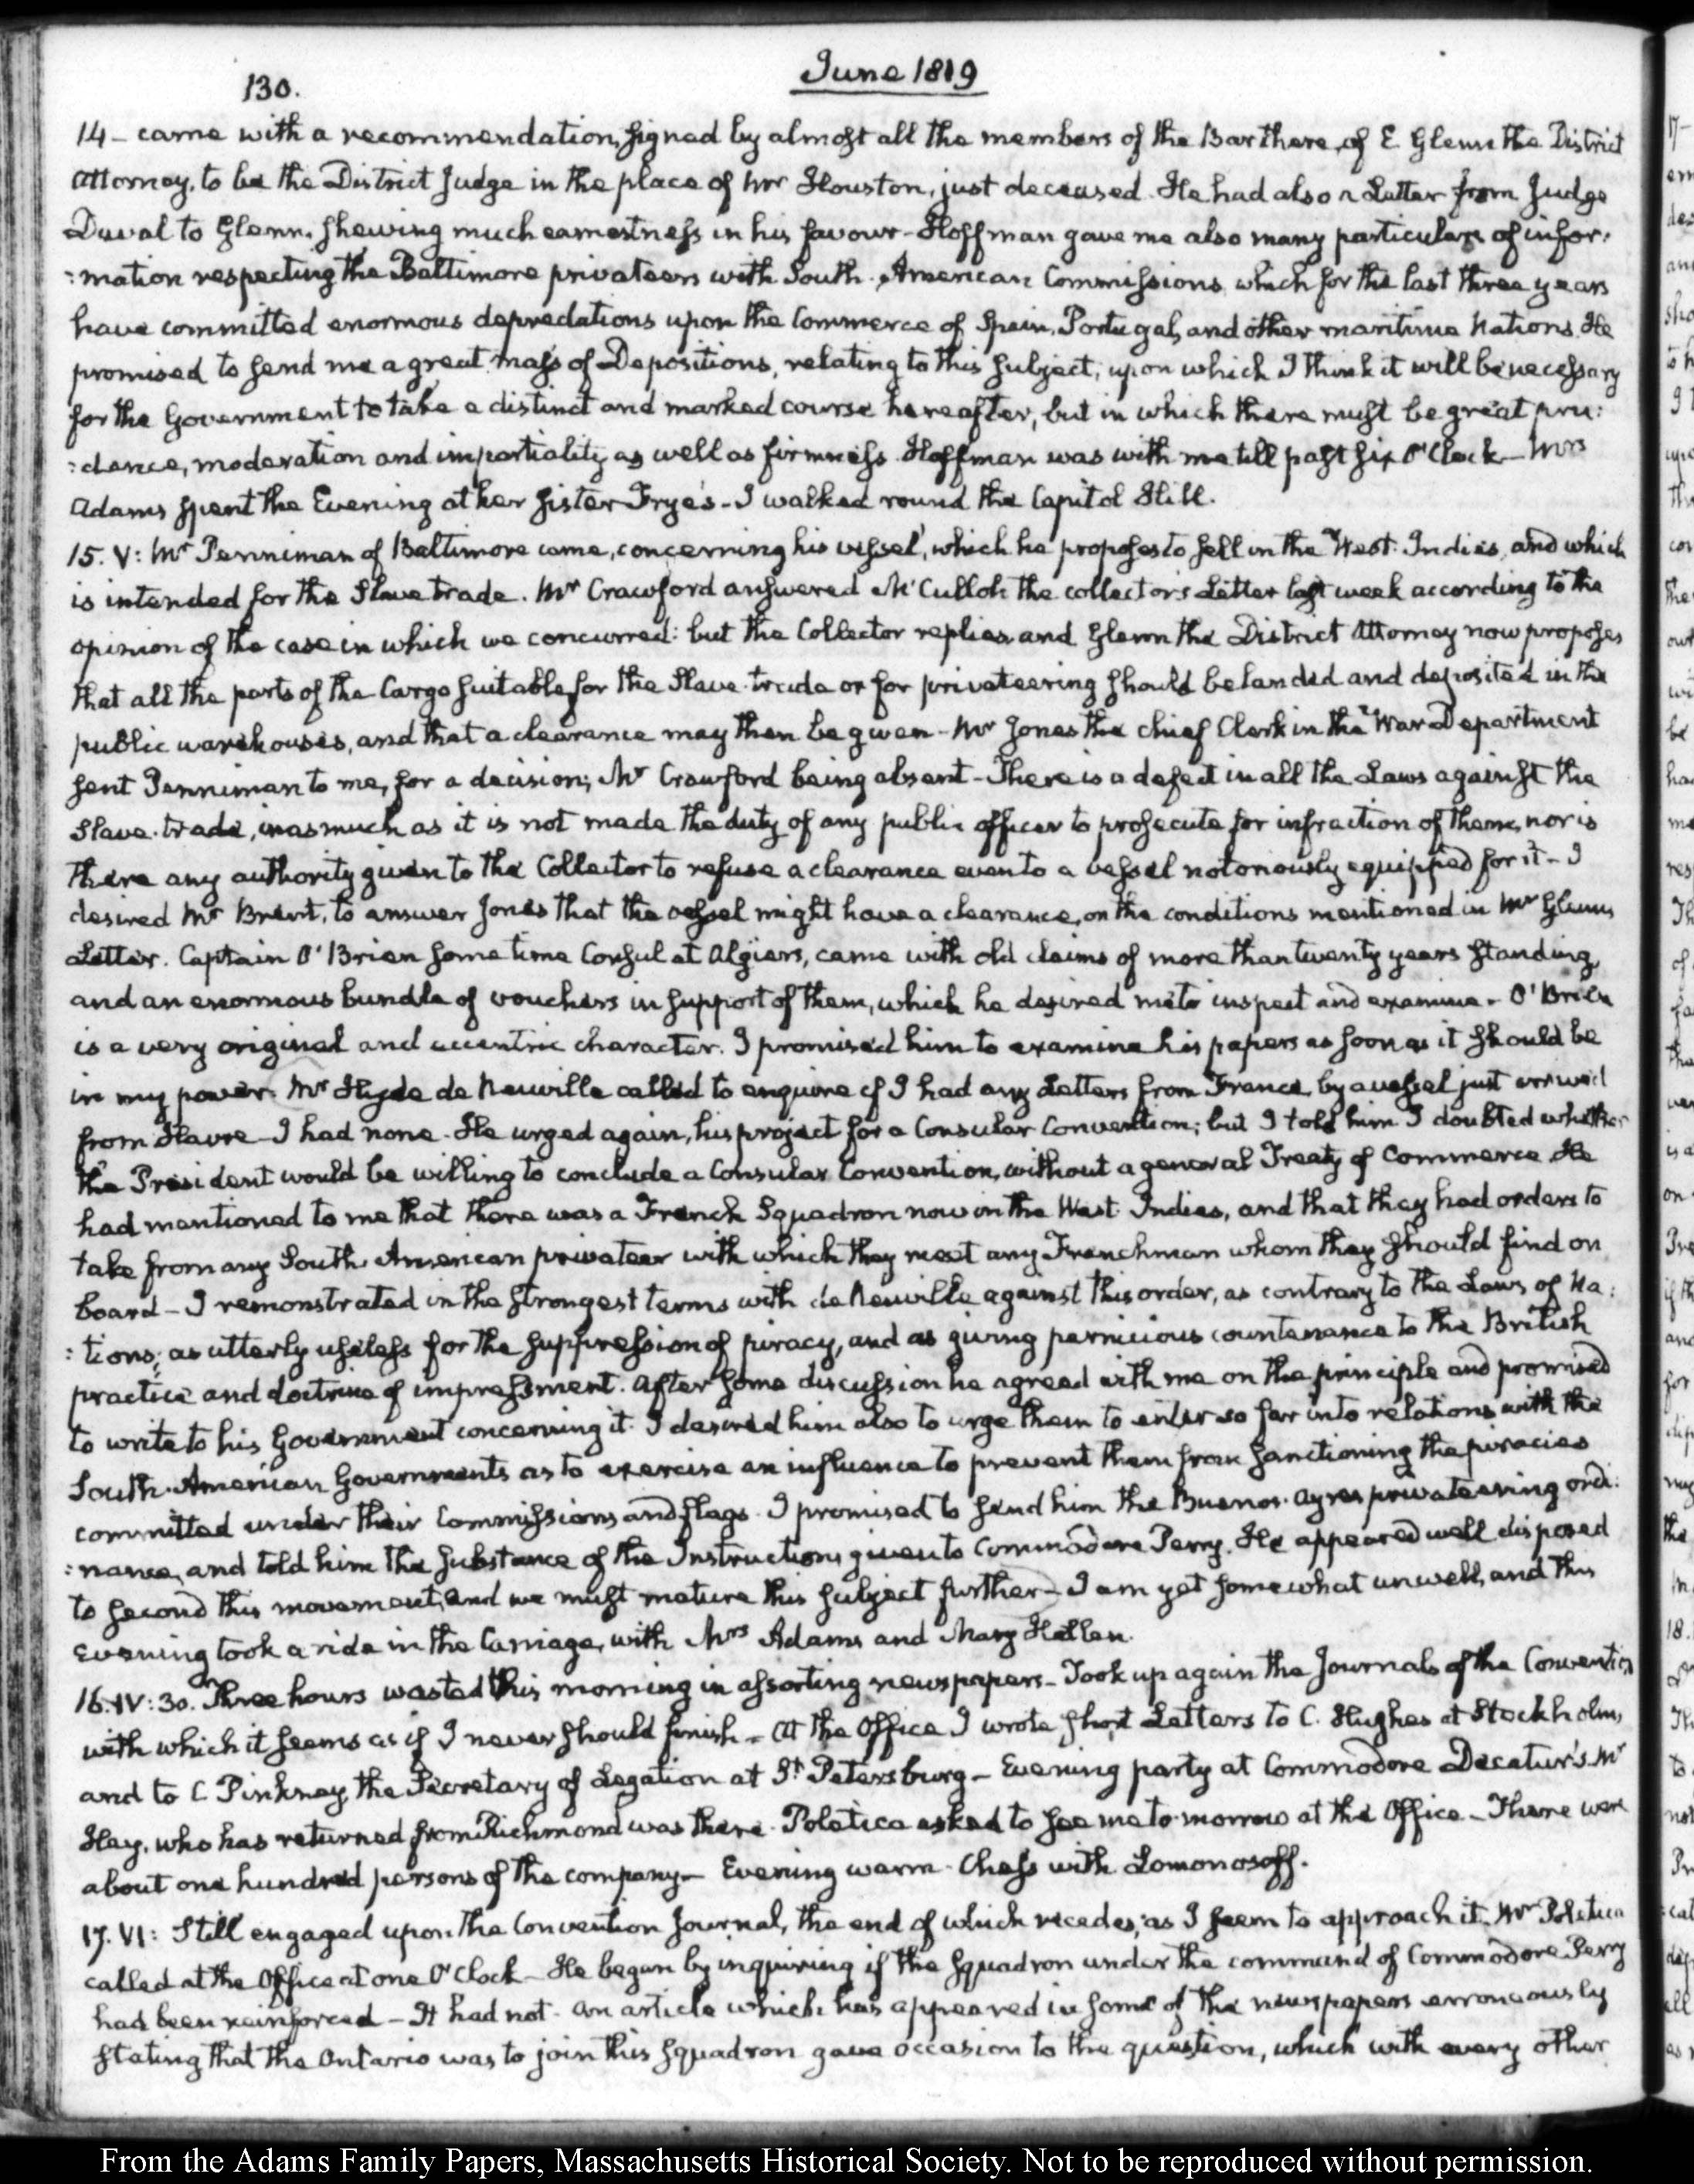 130.
June 1819
14 - came with a recommendation, signed by almost all the members of the Bar there, of E. Glenn the District
Attorney, to be the District Judge in the place of Mr Houston, just deceased. He had also a Letter from Judge
Duval to Glenn, shewing much earnestness in his favour - Hoffman gave me also many particulars of infor:
:mation respecting the Baltimore privateers with South-American Commissions, which for the last three years
have committed enormous depredations upon the Commerce of Spain, Portugal, and other maritime Nations. He
promised to send me a great mass of Depositions, relating to this subject, upon which I think it will be necessary
for the Government to take a distinct and marked course hereafter, but in which there must be great pru:
:dence, moderation and impartiality as well as firmness. Hoffman was with me till past six O'Clock - Mrs
Adams spent the Evening at her Sister Frye's - I walked round the Capitol Hill.
15. V: Mr Penniman of Baltimore came, concerning his vessel, which he proposes to sell in the West-Indies, and which
is intended for the Slave trade. Mr Crawford answered McCulloh the collector's Letter last week according to the
opinion of the case in which we concurred: but the Collector replies and Glenn the District Attorney now proposes
that all the parts of the Cargo suitable for the Slave-trade or for privateering should be landed and deposited in the
public warehouses, and that a clearance may then be given - Mr Jones the chief Clerk in the War Department
sent Penniman to me, for a decision; Mr Crawford being absent - There is a defect in all the Laws against the
Slave-trade, inasmuch as it is not made the duty of any public officer to prosecute for infraction of them, nor is
there any authority given to the Collector to refuse a clearance even to a vessel notoriously equipped for it - I
desired Mr Brent, to answer Jones that the vessel might have a clearance, on the conditions mentioned in Mr Glenns
Letter. Captain O'Brien sometime Consul at Algiers, came with old claims of more than twenty years standing,
and an enormous bundle of vouchers in support of them, which he desired me to inspect and examine - O'Brien
is a very original and eccentric character. I promised him to examine his papers as soon as it should be
in my power. Mr Hyde de Neuville called to enquire if I had any Letters from France, by a vessel just arrived
from Havre - I had none. He urged again, his project for a Consular Convention; but I told him I doubted whether
the President would be willing to conclude a Consular Convention, without a general Treaty of Commerce. He
had mentioned to me that there was a French Squadron now in the West-Indies, and that they had orders to
take from any South-American privateer with which they meet any Frenchman whom they should find on
board - I remonstrated in the strongest terms with de Neuville against this order, as contrary to the Laws of Na:
:tions; as utterly useless for the suppression of piracy, and as giving pernicious countenance to the British
practice and doctrine of impressment. After some discussion he agreed with me on the principle and promised
to write to his Government concerning it. I desired him also to urge them to enter so far into relations with the
South-American Governments as to exercise an influence to prevent them from sanctioning the piracies
committed under their Commissions and flags. I promised to send him the Buenos-Ayres privateering ordi:
:nance, and told him the substance of the Instructions given to Commodore Perry. He appeared well disposed
to second this movement, and we must mature this subject further - I am yet somewhat unwell, and this
Evening took a ride in the Carriage, with Mrs Adams and Mary Hellen.
16. IV: 30. Three hours wasted this morning in assorting newspapers - Took up again the Journals of the Convention
with which it seems as if I never should finish - At the Office I wrote short Letters to C. Hughes at Stockholm,
and to C Pinkney, the Secretary of Legation at St Petersburg - Evening party at Commodore Decatur's. Mr
Hay, who has returned from Richmond was there. Poletica asked to see me to-morrow at the Office - There were
about one hundred persons of the company - Evening warm - Chess with Lomonosoff.
17. VI: Still engaged upon the Convention Journal, the end of which recedes, as I seem to approach it. Mr Poletica
called at the Office at one O'Clock - He began by inquiring if the squadron under the command of Commodore Perry
had been reinforced - It had not - An article which has appeared in some of the newspapers erroneously
stating that the Ontario was to join this squadron gave occasion to the question, which with every other
From the Adams Family Papers, Massachusetts Historical Society. Not to be reproduced without permission.